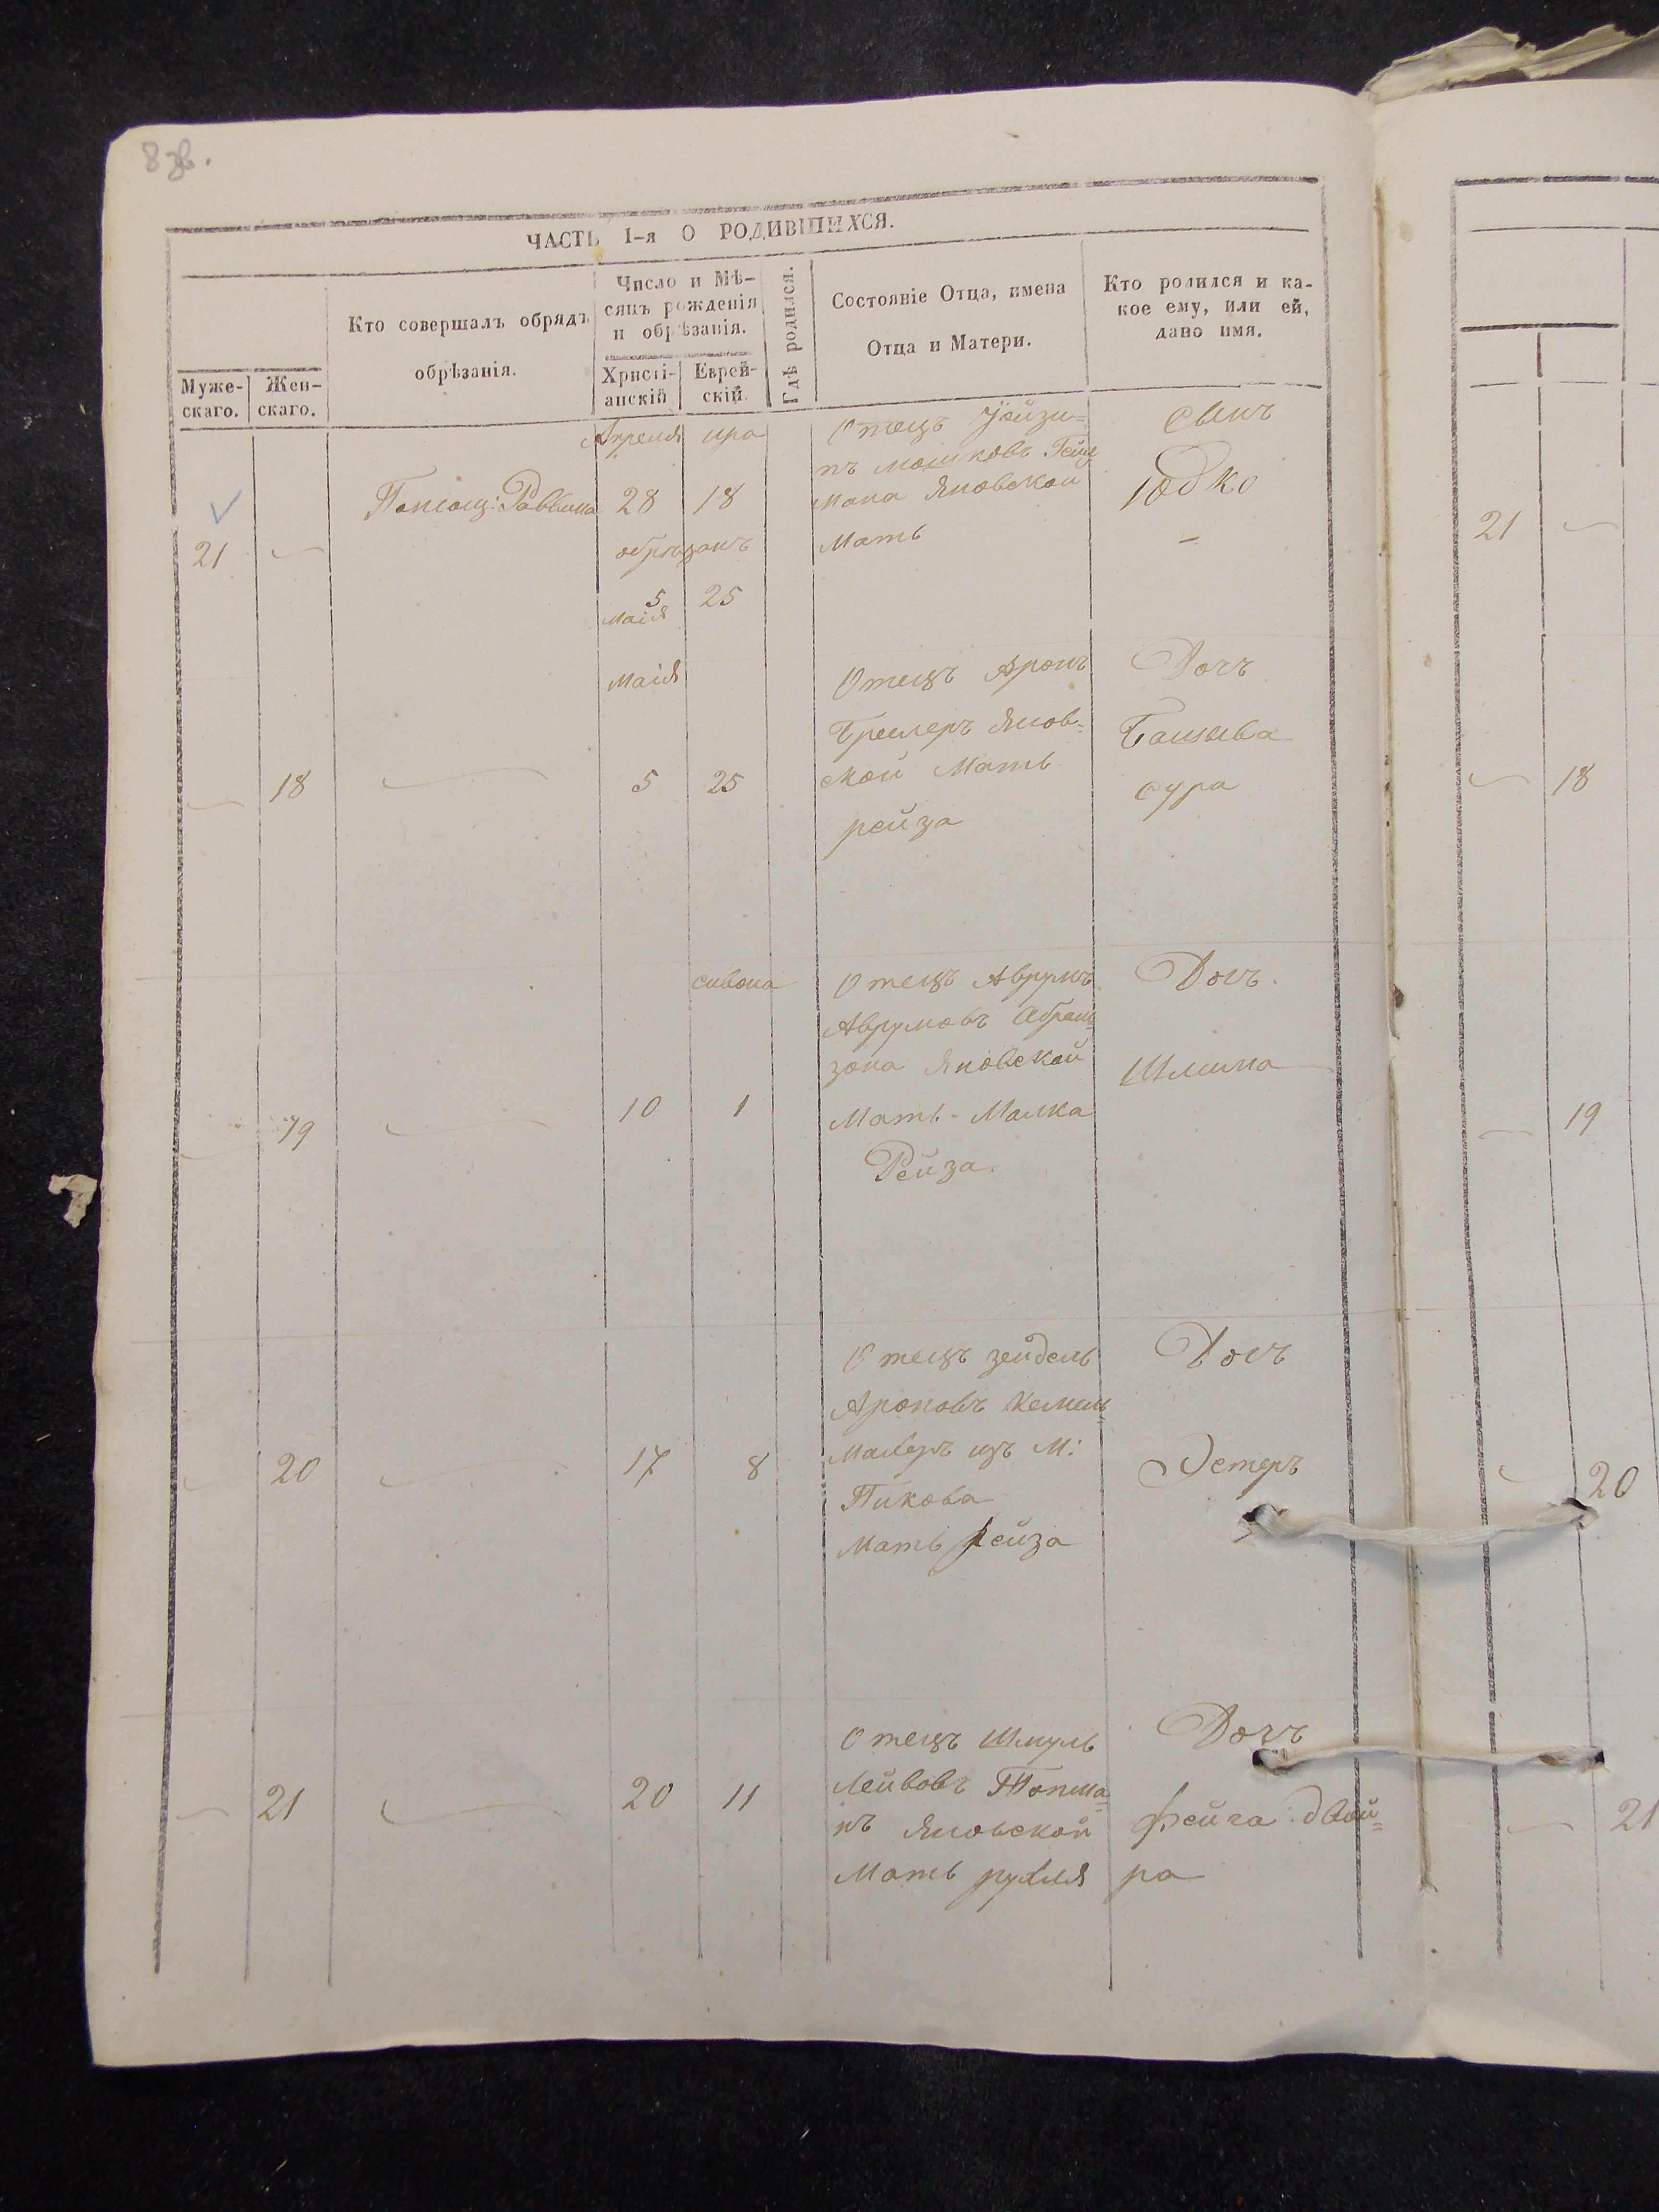 8 зв.
ЧАСТЬ I-я О РОДИВШИХСЯ.
Муже-
скаго.
Жен-
скаго.
Кто совершалъ обрядъ
обрѣзанія.
Число и Мѣ-
сяцъ рожденія
и обрѣзанія.
Христі-
анскій
Еврей-
скій
Гдѣ родился.
Состояніе Отца, имена
Отца и Матери.
Кто родился и ка-
кое ему, или ей,
дано имя.
21
Раввина
Апреля
28
ира
18
обрѣзанъ
5
Маія
25
Отецъ
нъ Мошковъ
мана Яновской
Мать
сынъ
Юдко
21
18
Маія
5
25
Отецъ Аронъ
Бремеръ Янов-
ской Мать
рейза
Дочъ
Башева
сура
18
19
10
сивона
1
Отецъ Аврумъ
Аврумовъ Абрам-
зона Яновской
Мать Малка
Рейза.
Дочъ.
Шлима
19
20
17
8
Отецъ зейдель
Ароновъ
изъ М:
Пикова
Мать Рейза
Дочъ
Эстеръ
20
21
20
11
Отецъ Шмуль
Лейвовъ
нъ Яновской
Мать рухля
Дочъ
фейга двой=
ра
21